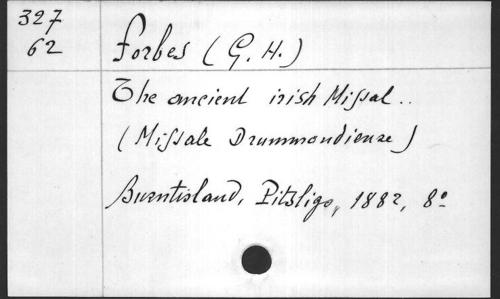 327
62
Forbes (G. H.)
The ancient irish Missal..
(Missale Drummondiense)
Burntisland, Pitsligo, 1882, 8º